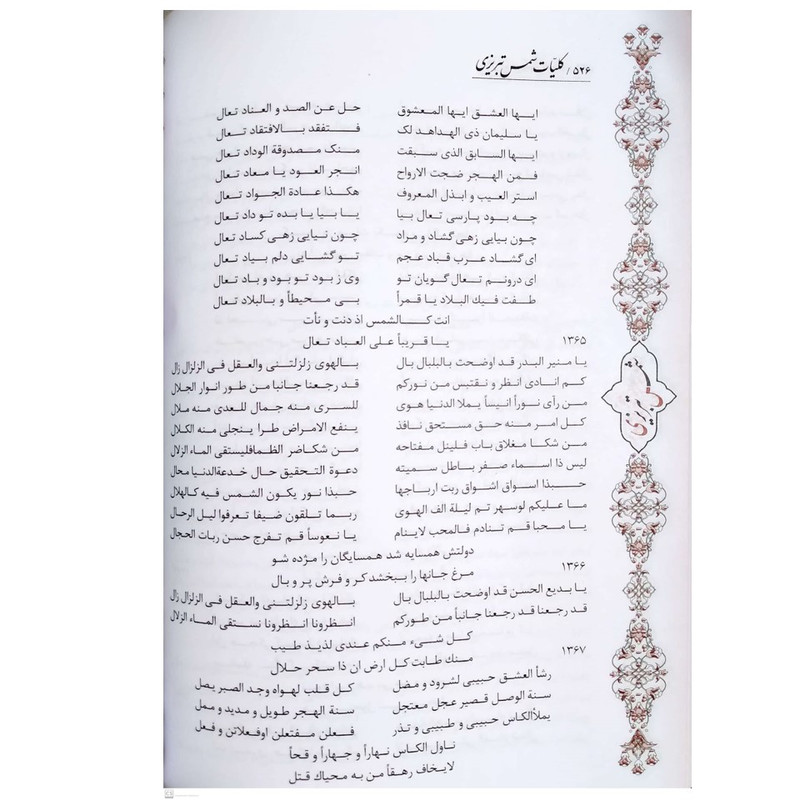 ۵۲۶ / کلیّات شمس تبریزی
ایها العشق ایها المعشوق حل عن الصد و العناد تعال
یا سلیمان ذی الهداهد لک فتفقد بالافتقاد تعال
ایها السابق الذی سبقت منک مصدوقة الوداد تعال
فمن الهجر ضجت الارواح انجر العود یا معاد تعال
استر العیب و ابذل المعروف هکذا عادة الجواد تعال
چه بود پارسی تعال بیا یا بیا یا بده تو داد تعال
چون بیایی زهی گشاد و مراد چون نیایی زهی کساد تعال
ای گشاد عرب قباد عجم تو گشایی دلم بیاد تعال
ای درونم تعال گویان تو وی ز بود تو بود و باد تعال
طفت فیك البلاد یا قمراً بی محیطاً و بالبلاد تعال
انت کالشمس اذ دنت و نأت
یا قریباً علی العباد تعال
۱۳۶۵
یا منیر البدر قد اوضحت بالبلبال بال بالهوی زلزلتنی والعقل فی الزلزال زال
کم انادی انظر و نقتبس من نورکم قد رجعنا جانبا من طور انوار الجلال
من رأی نوراً انیساً یملا الدنیا هوی للسری منه جمال للعدی منه ملال
کل امر منه حق مستحق نافذ ینفع الامراض طرا ینجلی منه الکلال
من شکا مغلاق باب فلینل مفتاحه من شکاضر الظمافلیستقی الماء الزلال
لیس ذا اسماء صفر باطل سمیته دعوة التحقیق حال خدعةالدنیا محال
حبذا اسواق اشواق ربت ارباجها حبذا نور یکون الشمس فیه کالهلال
ما علیکم لوسهر تم لیلة الف الهوی ربما تلقون ضیفا تعرفوا لیل الرحال
یا محبا قم تنادم فالمحب لاینام یا نعوساً قم تفرج حسن ربات الحجال
دولتش همسایه شد همسایگان را مژده شو
مرغ جانها را ببخشد کر و فرش پر و بال
۱۳۶۶
یا بدیع الحسن قد اوضحت بالبلبال بال بالهوی زلزلتنی والعقل فی الزلزال زال
قد رجعنا قد رجعنا جانباً من طورکم انظرونا انظرونا نستقی الماء الزلال
کل شیء منکم عندی لذیذ طیب
منك طابت کل ارض ان ذا سحر حلال
۱۳۶۷
رشأ العشق حبیبی لشرود و مضل کل قلب لهواه وجد الصبر یصل
سنة الوصل قصیر عجل معتجل سنة الهجر طویل و مدید و ممل
یملأالکاس حبیبی و طبیبی و تذر فعلن مفتعلن اوفعلاتن و فعل
ناول الکاس نهاراً و جهاراً و قحاً
لایخاف رهقاً من به محیاك قتل
شمس تبریزی